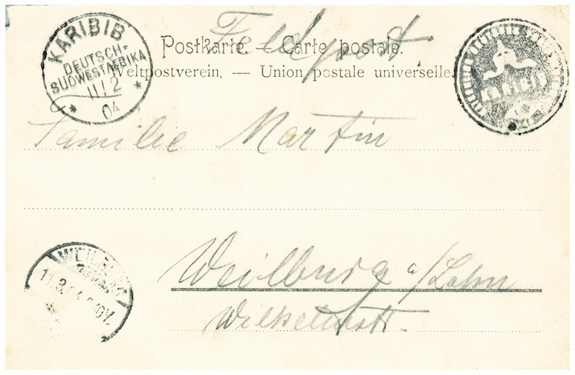 KARIBIB
DEUTSCH-
SÜDWESTAFRIKA
11/2
04
Feldpost.
Postkarte. — Carte postale.
Weltpostverein. — Union postale universelle.
Familie Martin
Weilburg a/Lahn
Wilhelmstr.